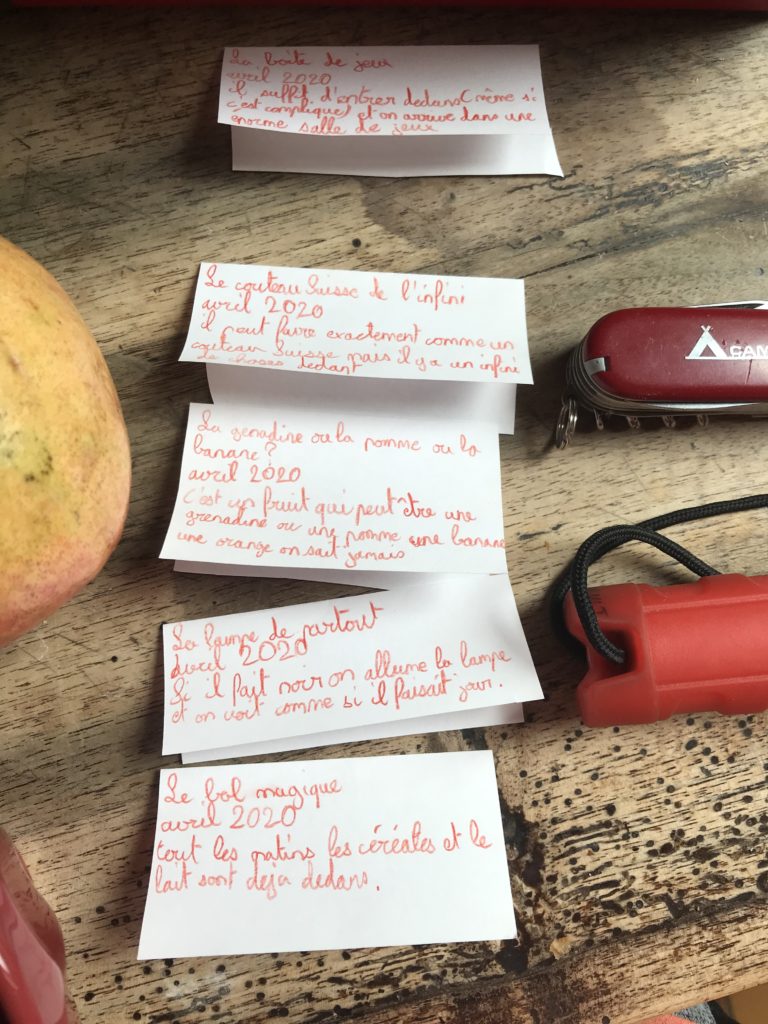 La boîte de jeux
avril 2020
il suffit d'entrer dedans (même si
c'est compliqué) et on arrive dans une
enorme salle de jeux
Le couteau Suisse de l'infini
avril 2020
il peut faire exactement comme un
couteau Suisse mais il y a un infini
de choses dedant
CAM
La genadine ou la pomme ou la
banane?
avril 2020
C'est un fruit qui peut être une
grenadine ou une pomme une banane
une orange on sait jamais
La lampe de partout
avril 2020
Si il fait noir on allume la lampe
et on voit comme si il faisait jour.
Le bol magique
avril 2020
tout les matins les céréales et le
lait sont deja dedans.